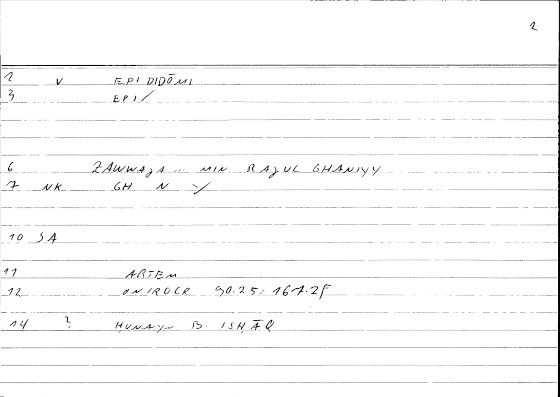 2
2 V EPIDIDŌMI
3 EPI/
6 ZAWWAJA ... MIN RAJUL GHANIYY
7 NK GH N Y/
10 SA
11 ARTEM
12 ONIROCR 90.25: 167.2F
14 ? HUNAYN B. ISHĀQ